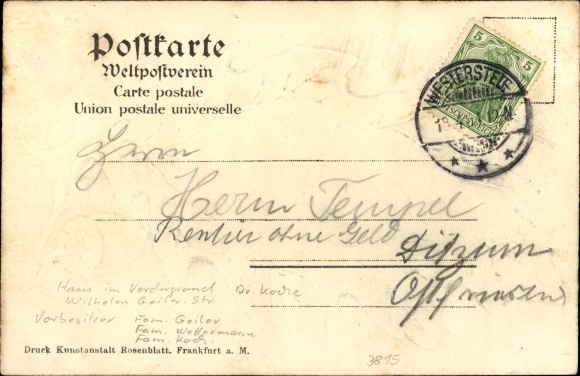 Postkarte
Weltpostverein
Carte postale
Union postale universelle
5 5
WESTERSTEDE
Herrn
Herrn Tempel
Rentier ohne Geld
Ditzum
Ostfriesland
Haus im Vordergrund
Wilhelm Geiler-Str. Dr. Koch
Vorbesitzer Fam. Geiler
Fam. Wettermann
Fam. Koch
Druck Kunstanstalt Rosenblatt, Frankfurt a. M.
3815